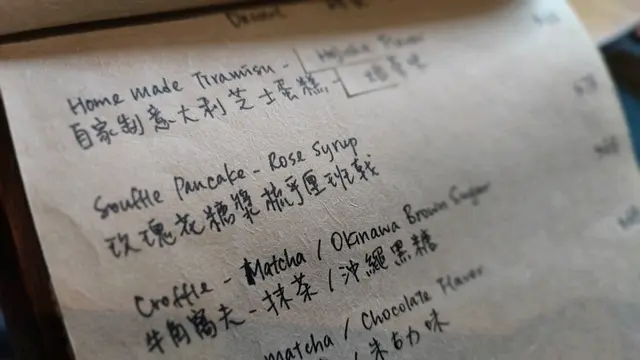 Dessert
Home Made Tiramisu - Hojicha Flavor
自家制意大利芝士蛋糕,
Souffle Pancake - Rose Syrup
玫瑰花糖漿梳乎厘班戟
Croffle - Matcha / Okinawa Brown Sugar
牛角窩夫 - 抹茶 / 沖繩黑糖
Matcha / Chocolate Flavor
/ 朱古力味